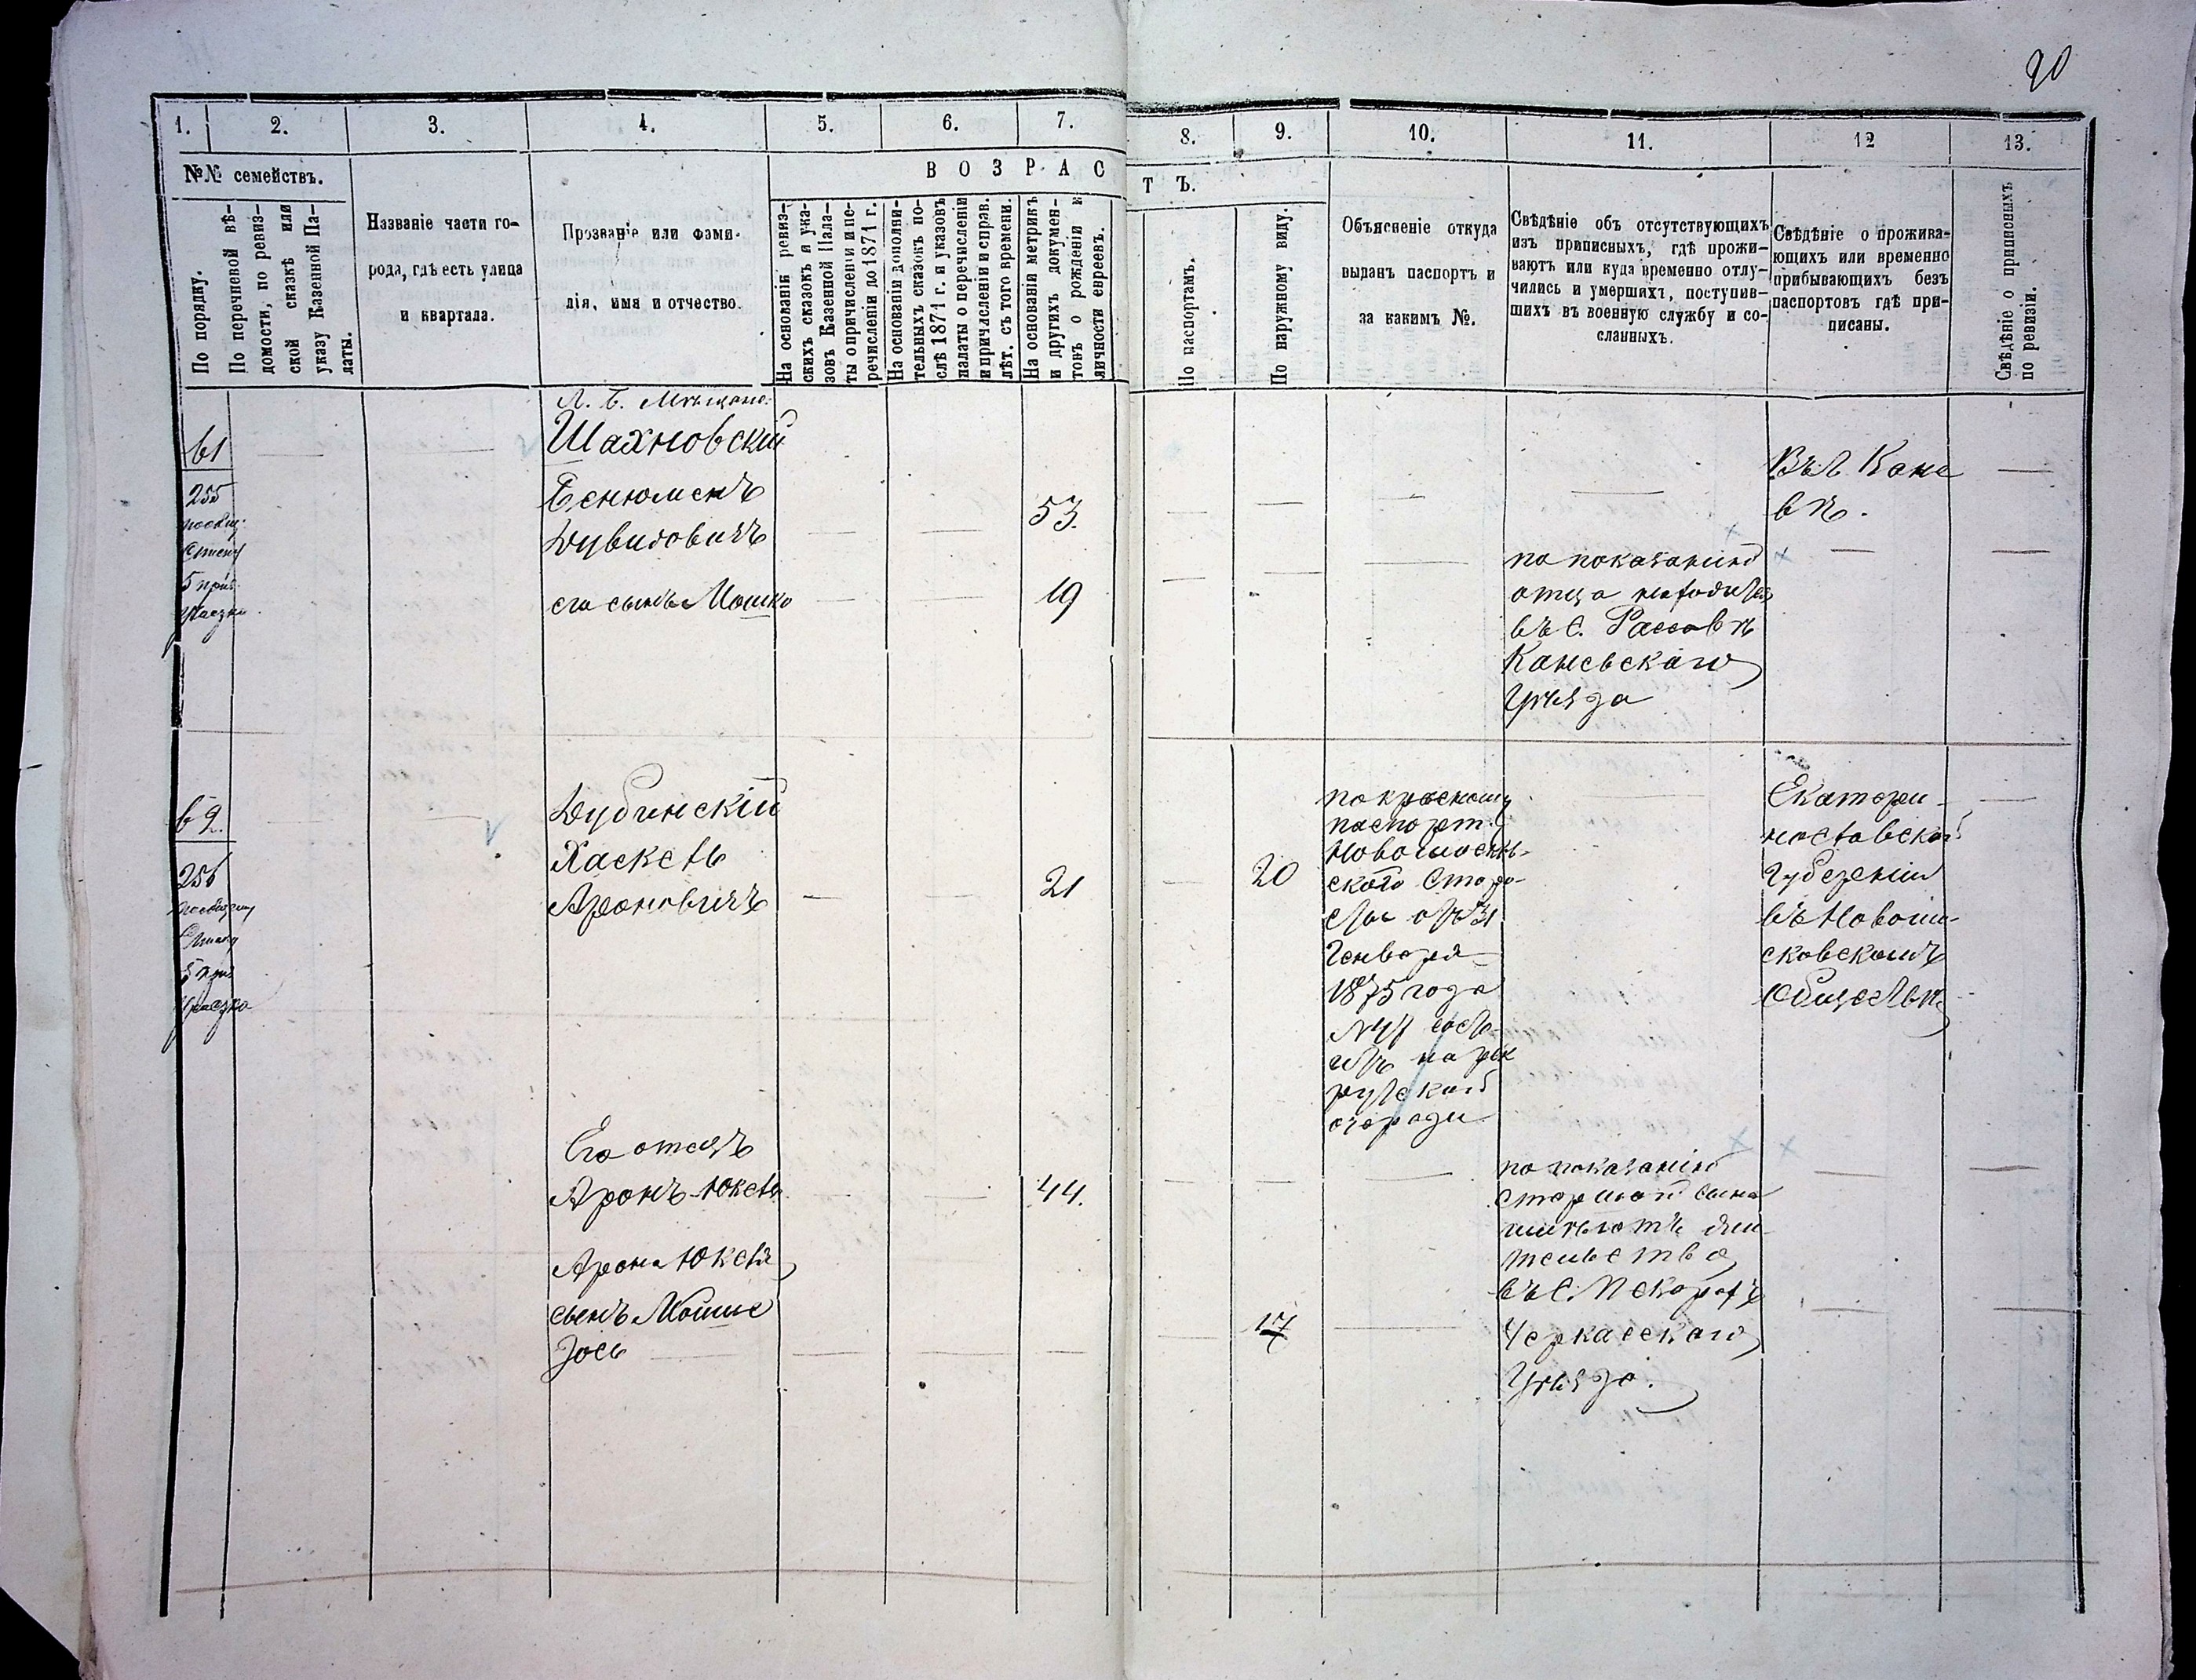 20
1.
2.
3.
4.
5.
6.
7.
8.
9.
10.
11.
12
13.
№№ семействъ.
ВОЗРАСТЪ.
По порядку.
По перечневой вѣ-
домости, по ревиз-
ской сказкѣ или
указу Казенной Па-
латы.
Названіе части го-
рода, гдѣ есть улица
и квартала.
Прозваніе или фами-
лія, имя и отчество.
На основаніи ревиз-
скихъ сказокъ и ука-
зовъ Казенной Пала-
ты о причисленіи и пе-
речисленіи до 1871 г.
На основаніи дополни-
тельныхъ сказокъ по-
слѣ 1871 г. и указовъ
палаты о перечисленіи
и причисленіи и справ.
лѣт. съ того времени.
На основаніи метрикъ
и другихъ докумен-
товъ о рожденіи и
личности евреевъ.
По паспортамъ.
По наружному виду.
Объясненіе откуда
выданъ паспортъ и
за какимъ №.
Свѣдѣніе объ отсутствующихъ
изъ приписныхъ, гдѣ прожи-
ваютъ или куда временно отлу-
чились и умершихъ, поступив-
шихъ въ военную службу и со-
сланныхъ.
Свѣдѣніе о прожива-
ющихъ или временно
прибывающихъ безъ
паспортовъ гдѣ при-
писаны.
Свѣдѣніе о приписныхъ
по ревизіи.
61
255
5 приз.
Шахновскій
Бенюменъ
Дувидовичъ
53.
Кане
вѣ.
его сынъ Мошко
19
по показанію
отца находится
въ с. Рассавѣ
Каневскаго
Уѣзда
62.
256
Дубинскій
Хаскель
Ароновичъ
21
20
по красному
паспорт.
Новомосков-
ского Старо-
сты отъ 31
Генваря
1875 года
состо-
итъ на рек
рутской
очереди
Екатери-
нославской
Губерніи
въ Новомо-
сковскомъ
Обществѣ
Его отецъ
Аронъ-Юкель
44.
по показанію
старшой сына
имѣютъ жи-
тельство
въ С. Пекаряхъ
Черкасскаго
Уѣзда.
Арона Юкеля
сынъ Мошко
Іось
17